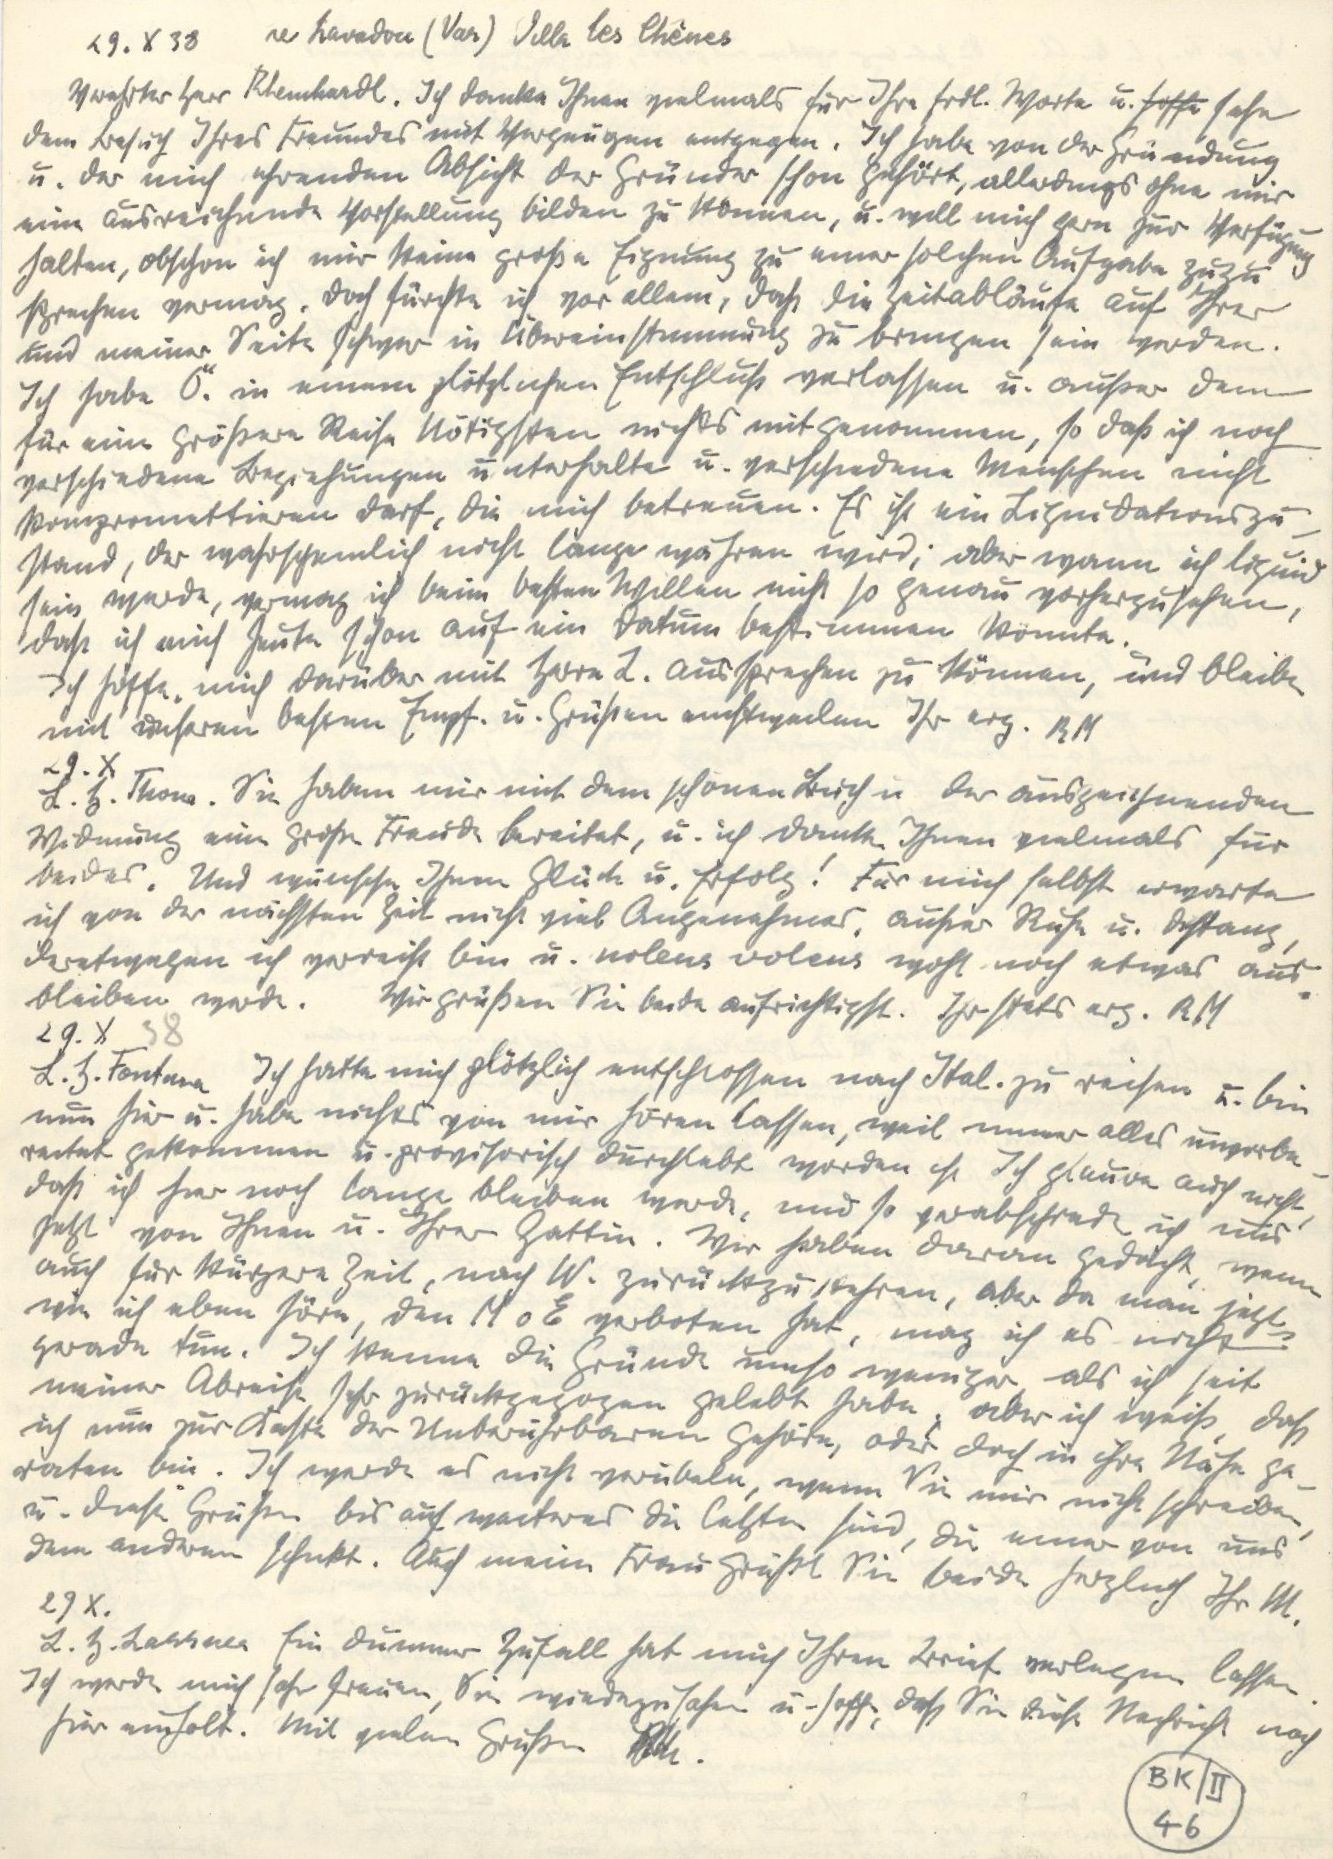 29. X 38 Le Lavadou (Var) Villa les Chênes
Verehrter Herr Rheinhardt. Ich danke Ihnen vielmals für Ihre frdl. Worte u. hoffe sehe
dem Besuch Ihres Freundes mit Vergnügen entgegen. Ich habe von der Gründung
u. der mich ehrenden Absicht der Gründer schon gehört, allerdings ohne mir
eine ausreichende Vorstellung bilden zu können, u. will mich gern zur Verfügung
halten, obschon ich mir keine große Eignung zu einer solchen Aufgabe zuzu
sprechen vermag. Doch fürchte ich vor allem, daß die Zeitabläufe auf Ihrer
und meiner Seite schwer in Übereinstimmung zu bringen sein werden.
Ich habe Ö. in einem plötzlichen Entschluß verlassen u. außer dem
für eine größere Reise Nötigsten nichts mitgenommen, so daß ich noch
verschiedene Beziehungen unterhalte u. verschiedene Menschen nicht
kompromettieren darf, die mich betreuen. Es ist ein Liquidationszu-
stand, der wahrscheinlich nicht lange währen wird; aber wann ich liquid
sein werde, vermag ich beim besten Willen nicht so genau vorherzusehen,
daß ich mich heute schon auf ein Datum bestimmen könnte.
Ich hoffe, mich darüber mit Herrn L. aussprechen zu können, und bleibe
mit unseren besten Empf. u. Grüßen einstweilen Ihr erg. RM
29. X
L. H. Thoma. Sie haben mir mit dem schönen Buch u der auszeichnenden
Widmung eine große Freude bereitet, u. ich danke Ihnen vielmals für
beides. Und wünsche Ihnen Glück u. Erfolg! Für mich selbst erwarte
ich von der nächsten Zeit nicht viel Angenehmes, außer Ruhe u. Distanz,
deretwegen ich verreist bin u. nolens volens wohl noch etwas aus-
bleiben werde. Wir grüßen Sie beide aufrichtigst. Ihr stets erg. RM
29. X 38
L. H. Fontana Ich hatte mich plötzlich entschlossen nach Ital. zu reisen u. bin
nun hier u. habe nichts von mir hören lassen, weil immer alles unvorbe-
reitet gekommen u. provisorisch durchlebt worden ist Ich glaube auch nicht,
daß ich hier noch lange bleiben werde, und so verabschiede ich uns
jetzt von Ihnen u. Ihrer Gattin. Wir haben daran gedacht, wenn
auch für kürzere Zeit, nach W. zurückzukehren, aber da man jetzt,
wie ich eben höre, den M o E verboten hat, mag ich es nicht
gerade tun. Ich kenne die Gründe umso weniger als ich seit
meiner Abreise sehr zurückgezogen gelebt habe; aber ich weiß, daß
ich nun zur Kaste der Unberührbaren gehöre, oder doch in ihre Nähe ge-
raten bin. Ich werde es nicht verübeln, wenn Sie mir nicht schreiben,
u. diese Grüße bis auf weiteres die letzten sind, die einer von uns
dem anderen schickt. Auch meine Frau grüßt Sie beide herzlich Ihr M.
29 X.
L. H. Ein dummer Zufall hat mich Ihren Brief verlegen lassen.
Ich werde mich sehr freuen, Sie wiederzusehen u. hoffe, daß Sie diese Nachricht noch
hier einholt. Mit vielen Grüßen RM.
BK/II
46